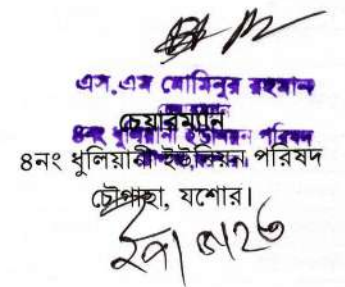 এস, এম মোমিনুর রহমান
চেয়ারম্যান
৪নং ধুলিয়ানী ইউনিয়ন পরিষদ
৪নং ধুলিয়ানী ইউনিয়ন পরিষদ
চৌগাছা, যশোর।